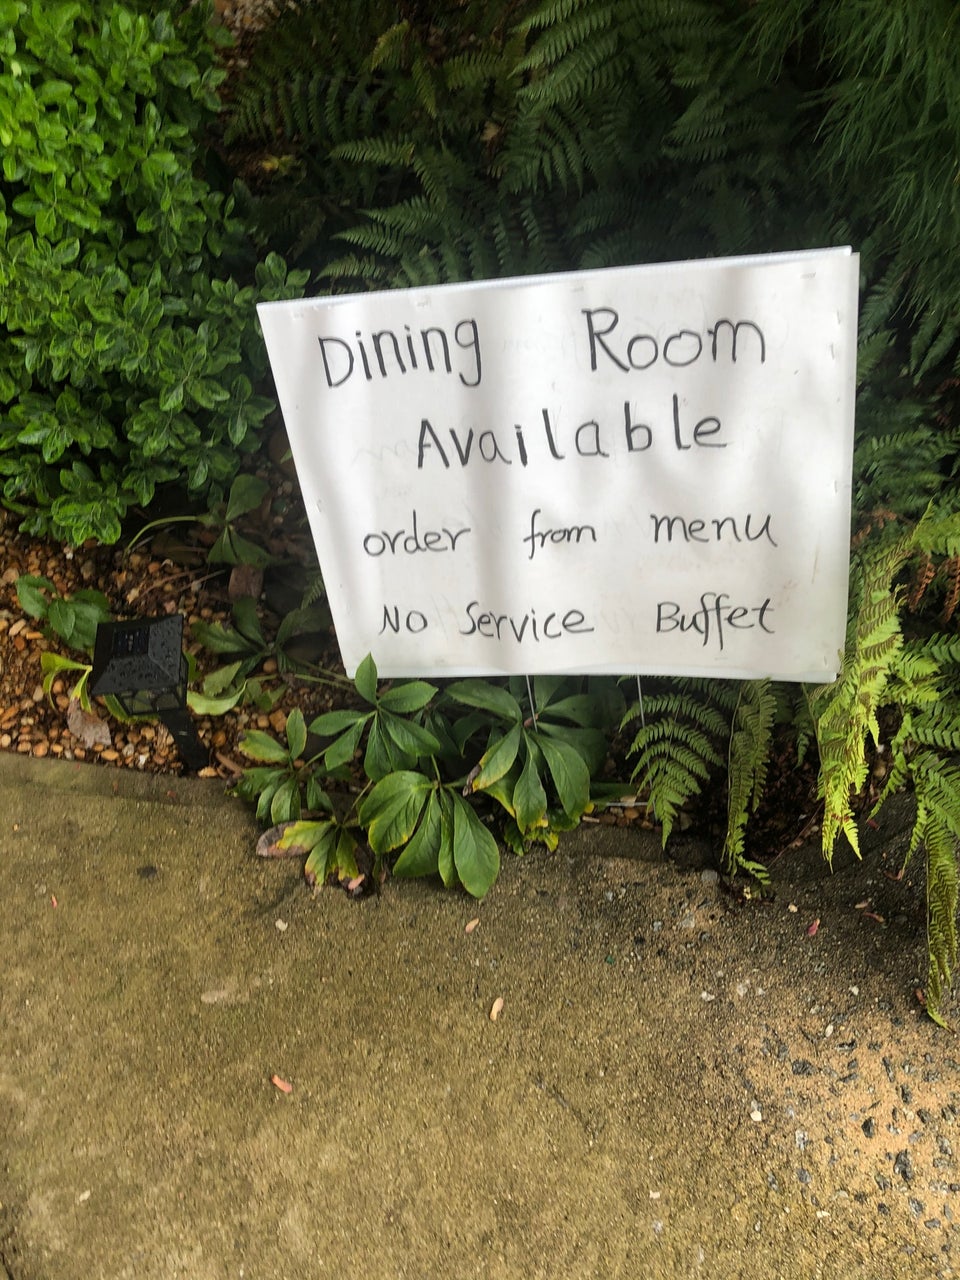 Dining Room
Available
order from menu
No Service Buffet